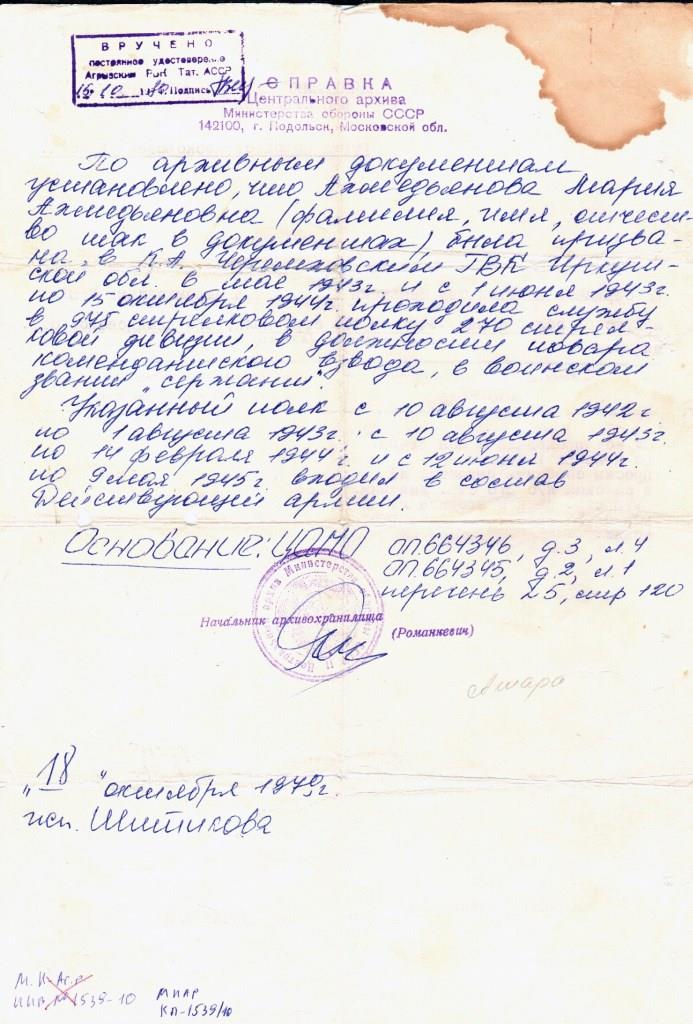 ВРУЧЕНО
постоянное удостоверение
Агрызским РВК Тат. АССР
Подпись
СПРАВКА
Центрального архива
Министерства обороны СССР
142100, г. Подольск, Московской обл.
По архивным документам
установлено, что Ахмедьянова Мария
Ахмедьяновна (фамилия, имя, отчест-
во так в документах) была призва-
на в К.А. Черемховским ГВК Иркут-
ской обл. в мае 1943г. и с 1 июня 1943г.
по 15 октября 1944г. проходила службу
в 975 стрелковом полку 270 стрел-
ковой дивизии, в должности повара
комендантского взвода, в воинском
звании "сержант".
Указанный полк с 10 августа 1942г.
по 1 августа 1943г. с 10 августа 1943г.
по 14 февраля 1944г. и с 12 июня 1944г.
по 9 мая 1945г. входил в состав
Действующей армии.
Основание: ЦАМО оп. 664346, д.3, л.4
оп. 664345, д.2, л.1
перечень 25, стр 120
Начальник архивохранилища
(Романкевич)
"18" октября 1979г.
исп. Шитикова
М.И. Аг.р
ИНВ № 1539-10
МИАР
КП-1539/10